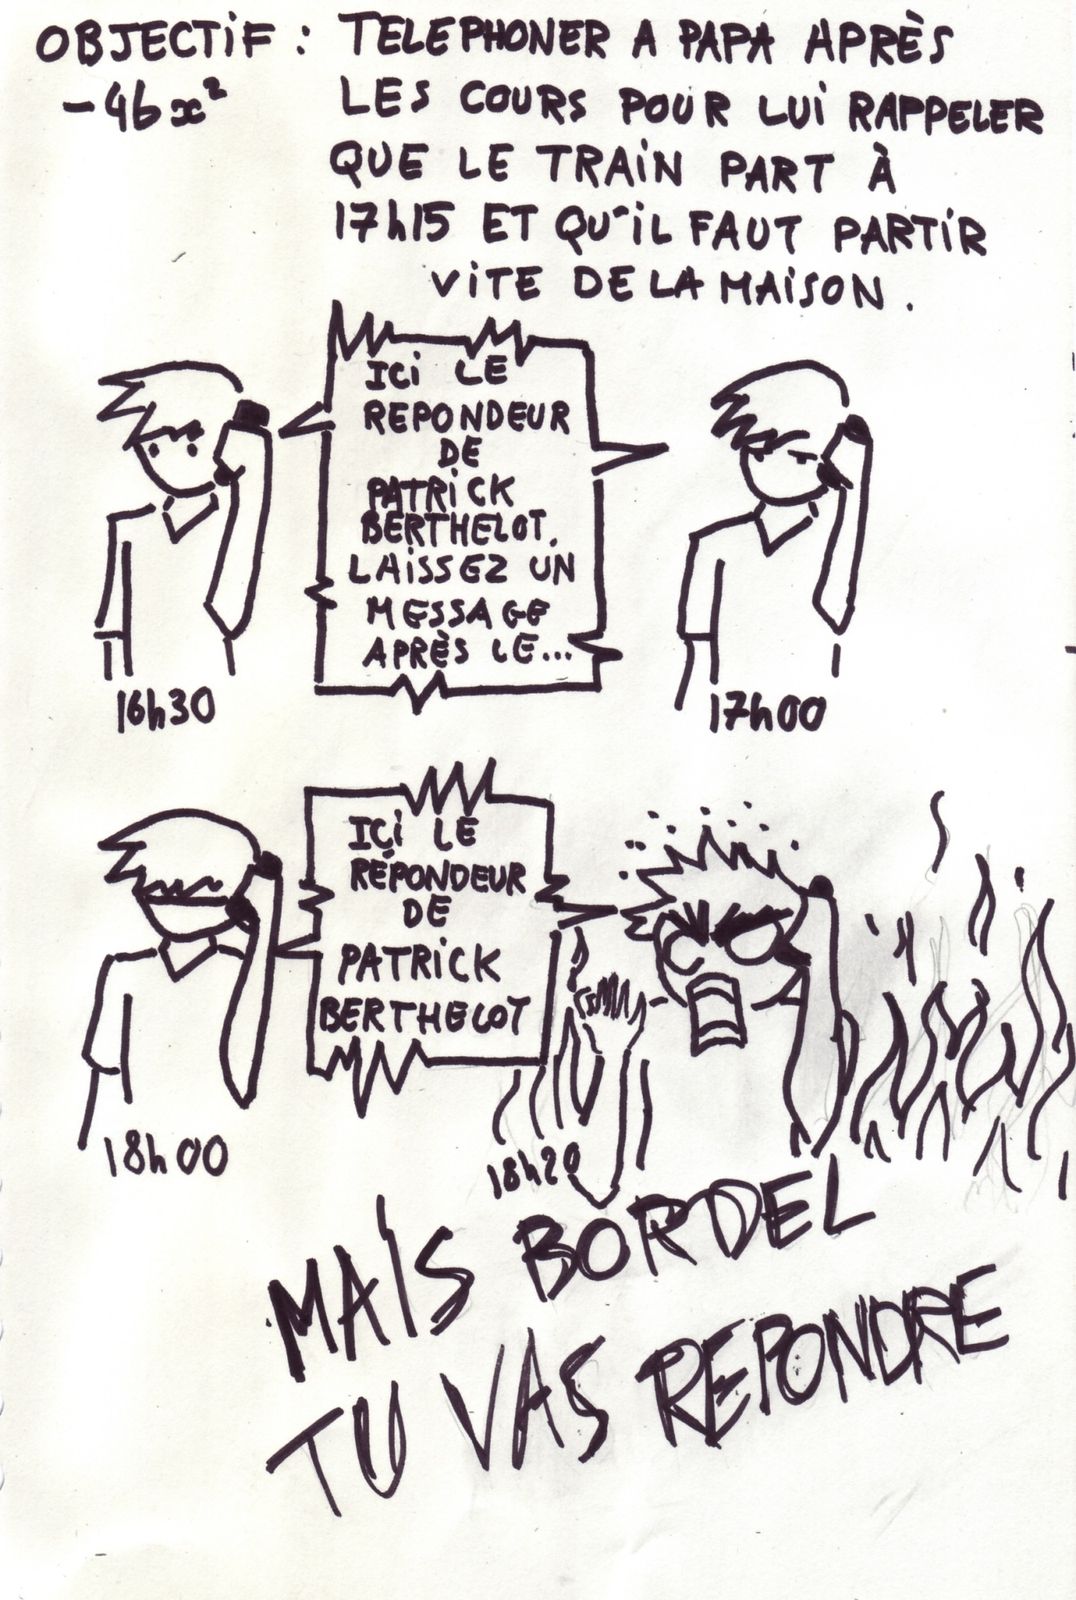 OBJECTIF : TELEPHONER A PAPA APRÈS
-46x² LES COURS POUR LUI RAPPELER
QUE LE TRAIN PART À
17h15 ET QU'IL FAUT PARTIR
VITE DE LA MAISON.
ICI LE
REPONDEUR
DE
PATRICK
BERTHELOT.
LAISSEZ UN
MESSAGE
APRÈS LE...
16h30
17h00
IÇI LE
RÉPONDEUR
DE
PATRICK
BERTHELOT
18h00
18h20
MAIS BORDEL
TU VAS REPONDRE